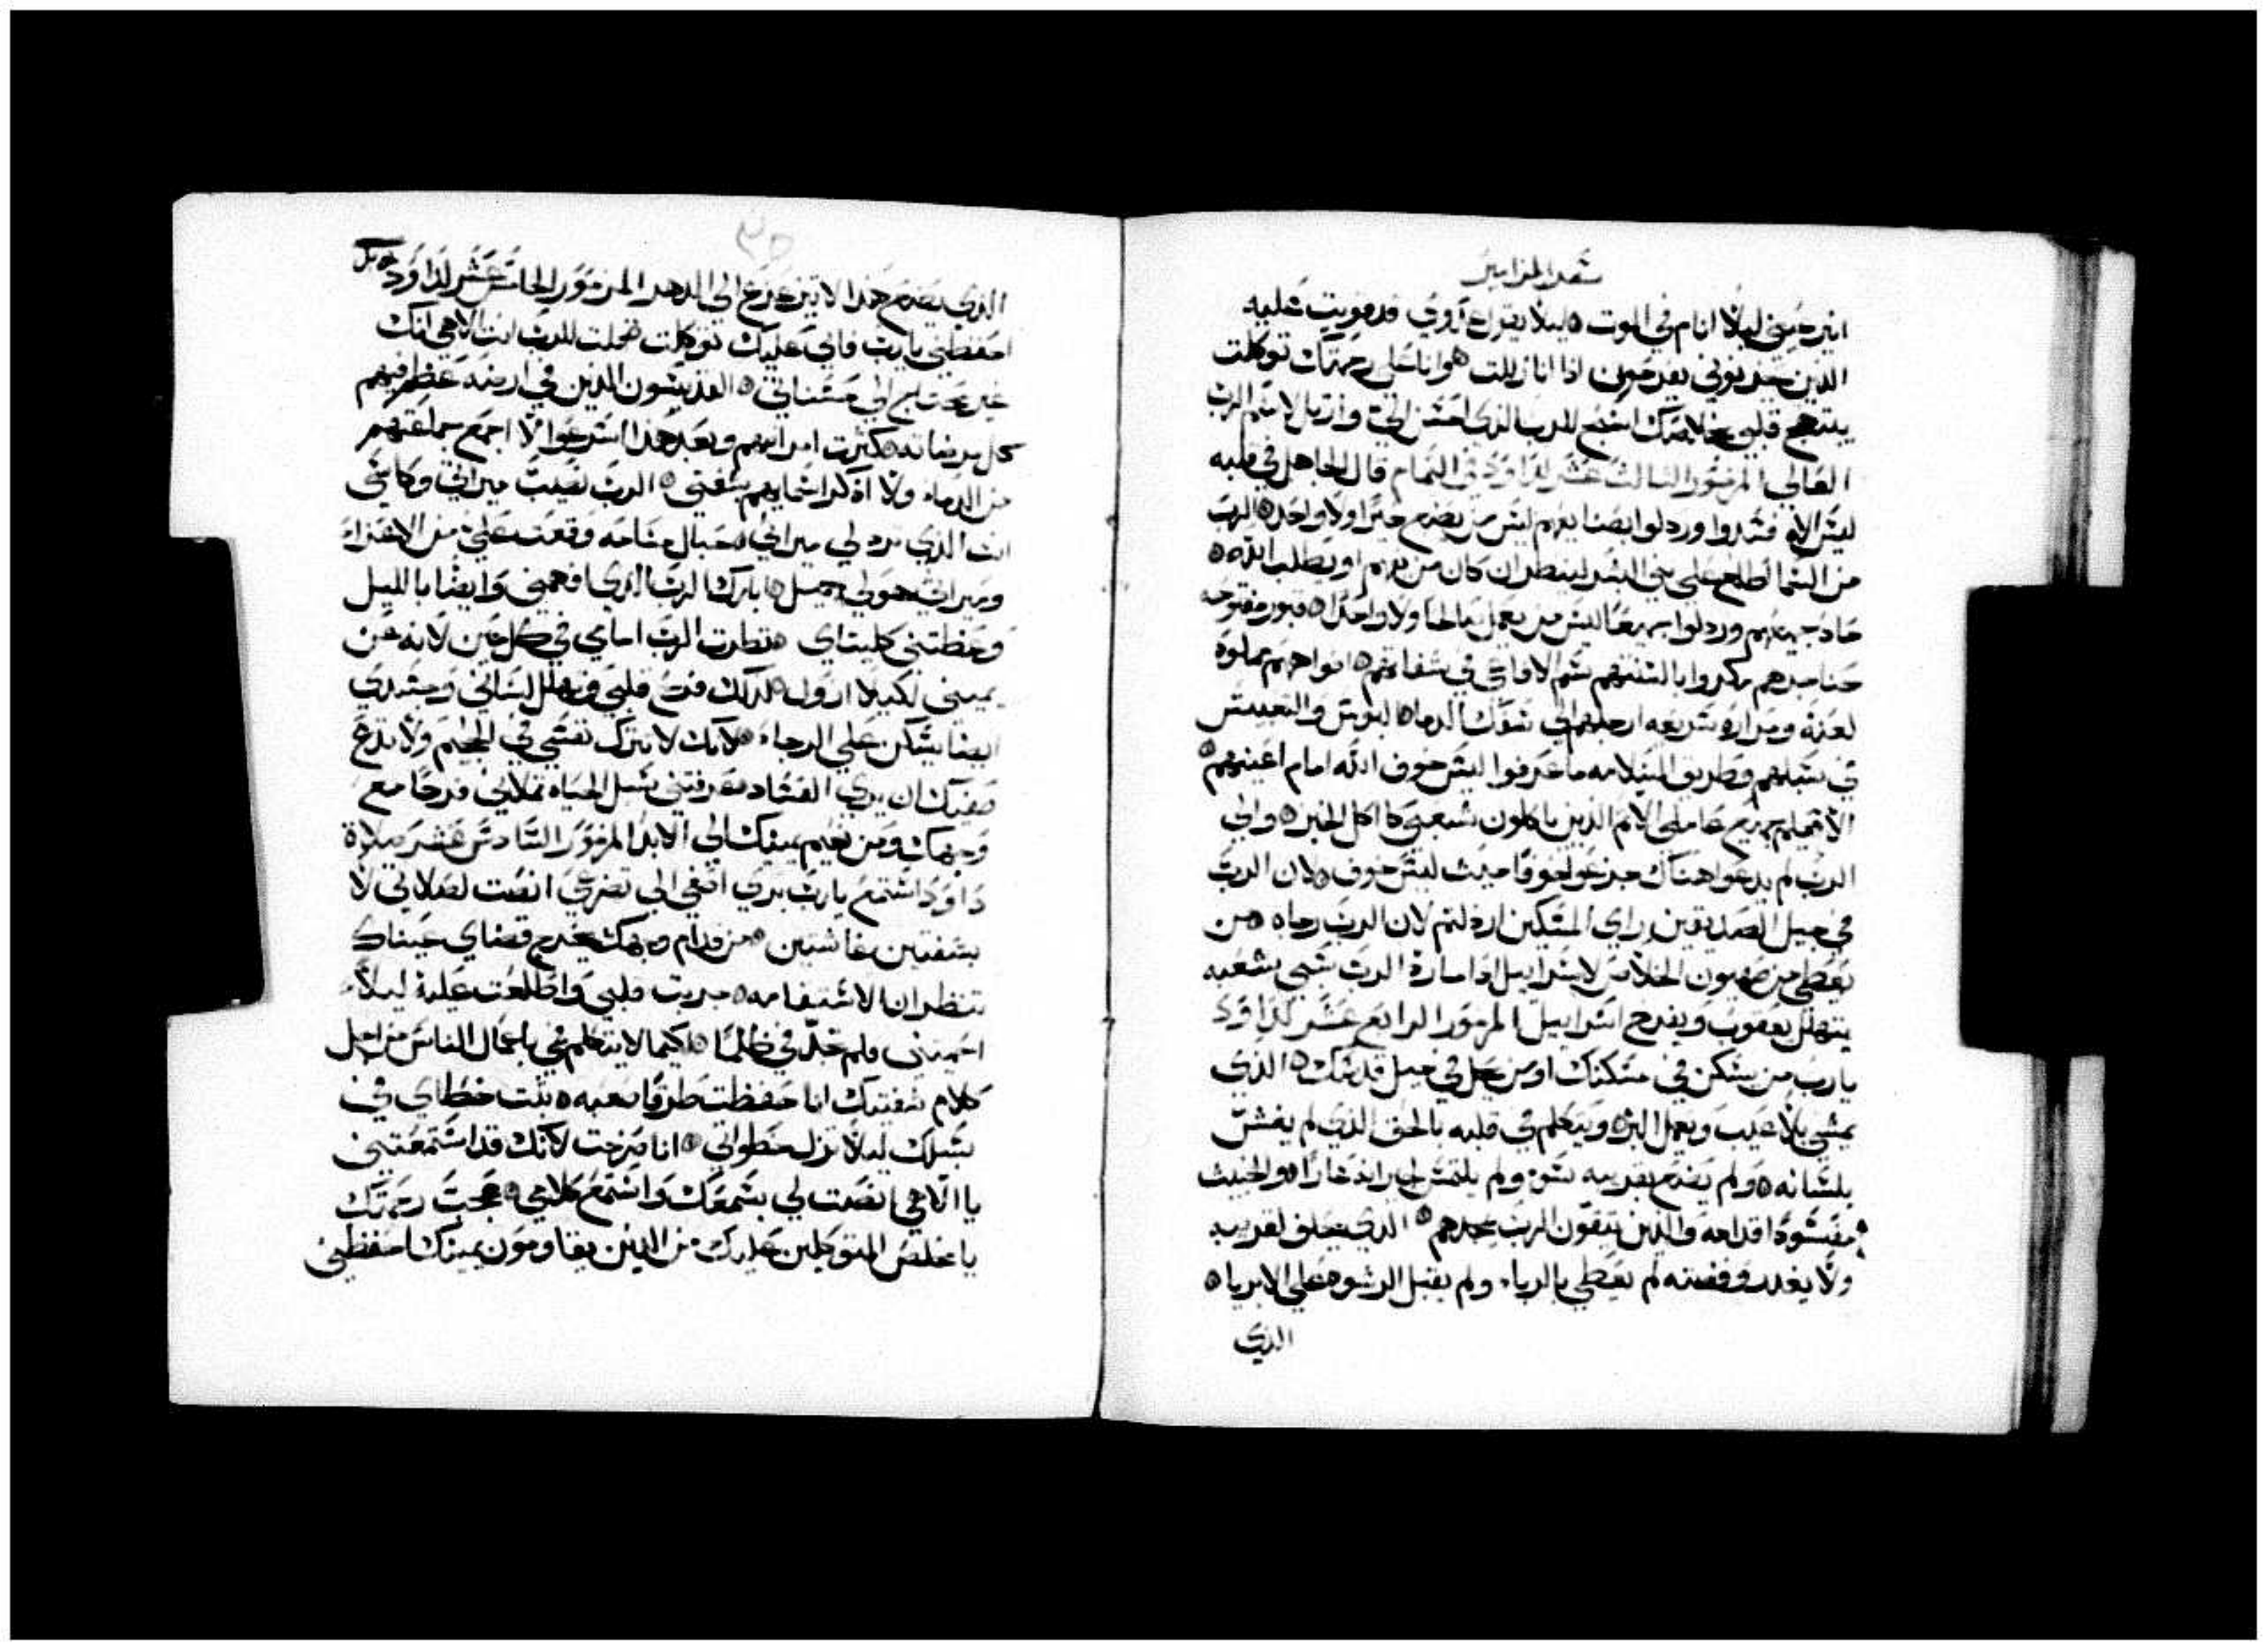 سفر المزامير
انير عيني ليلا انام في الموت ليلا يقول عدوي قد قويت عليه
الذين يحزنوني يفرحون اذا انا زللت وانا على رحمتك توكلت
يبتهج قلبي بخلاصك اسبح للرب الذي احسن الي وارتل لاسم الرب
العالي المزمور الثالث عشر لداود في التمام قال الجاهل في قلبه
ليس اله فسدوا وردلوا بصنايعهم ليس من يصنع خيرا ولا واحد الرب
من السما اطلع على بني البشر لينظر ان كان من يفهم او يطلب الله
حاد جميعهم وردلوا جميعا ليس من يعمل صالحا ولا واحدا قبور مفتوحه
حناجرهم مكروا بالسنتهم سم الافاعي في شفاههم افواههم مملوه
لعنة ومرارة سريعه ارجلهم الى سفك الدما البوس والتعيس
في سبلهم وطريق السلامه ما عرفوا ليس خوف الله امام اعينهم
الا تعلم جميع عاملي الاثم الذين ياكلون شعبي كاكل الخبز والى
الرب لم يدعوا هناك جزعوا خوفا حيث ليس خوف لان الرب
في جيل الصديقين راي المسكين ارذلتم لان الرب رجاه من
يعطي من صهيون الخلاص لاسراييل اذا ما رد الرب سبي شعبه
يتهلل يعقوب ويفرح اسراييل المزمور الرابع عشر لداود
يارب من يسكن في مسكنك او من يحل في جبل قدسك الذي
يمشي بلا عيب ويعمل البر ويتكلم في قلبه بالحق الذي لم يغش
بلسانه ولم يصنع بقريبه سوء ولم يلتمس لجيرانه عارا والخبيث
مفسود اقدامه والذين يتقون الرب يمجدهم الذي يحلف لقريبه
ولا يغدر وفضته لم يعطي بالرباء ولم يقبل الرشوه على الابرياء
الذي
الذي يصنع هذا لا يتزعزع الى الدهر المزمور الخامس عشر لداود
احفظني يارب فاني عليك توكلت قلت للرب انت الاهي انك
غير محتاج الى حسناتي القديسون الذين في ارضه عظم فيهم
كل مرضاته كثرت امراضهم وبعد هذا اسرعوا لا اجمع جماعتهم
من الدماء ولا اذكر اسمايهم بشفتي الرب نصيب ميراثي وكاسي
انت الذي ترد لي ميراثي حبال مساحه وقعت علي من الاعزاء
وميراث هو لي جميل ابارك الرب الذي افهمني وايضا بالليل
وعظتني كليتاي نظرت الرب امامي في كل حين لانه عن
يميني لكيلا ازول لذلك فرح قلبي وتهلل لساني وجسدي
ايضا يسكن على الرجاء لانك لا تترك نفسي في الجحيم ولا تدع
صفيك ان يري الفساد عرفتني سبل الحياه تملاني فرحا مع
وجهك ومن نعيم يمينك الى الابد المزمور السادس عشر صلاة
داود استمع يارب بري اصغي الى تضرعي انصت لصلاتي لا
بشفتين غاشتين من قدام وجهك يخرج قضاي عيناك
تنظران الاستقامه جربت قلبي واطلعت عليه ليلا
احميتني فلم تجد في ظلما لكيما لا يتكلم فمي باعمال الناس من اجل
كلام شفتيك انا حفظت طرقا صعبه ثبت خطاي في
سبلك ليلا تزل خطواتي انا صرخت لانك قد استمعتني
يا الاهي انصت لي بسمعك واستمع كلامي عجب رحمتك
يا مخلص المتوكلين عليك من الذين يقاومون يمينك احفظني